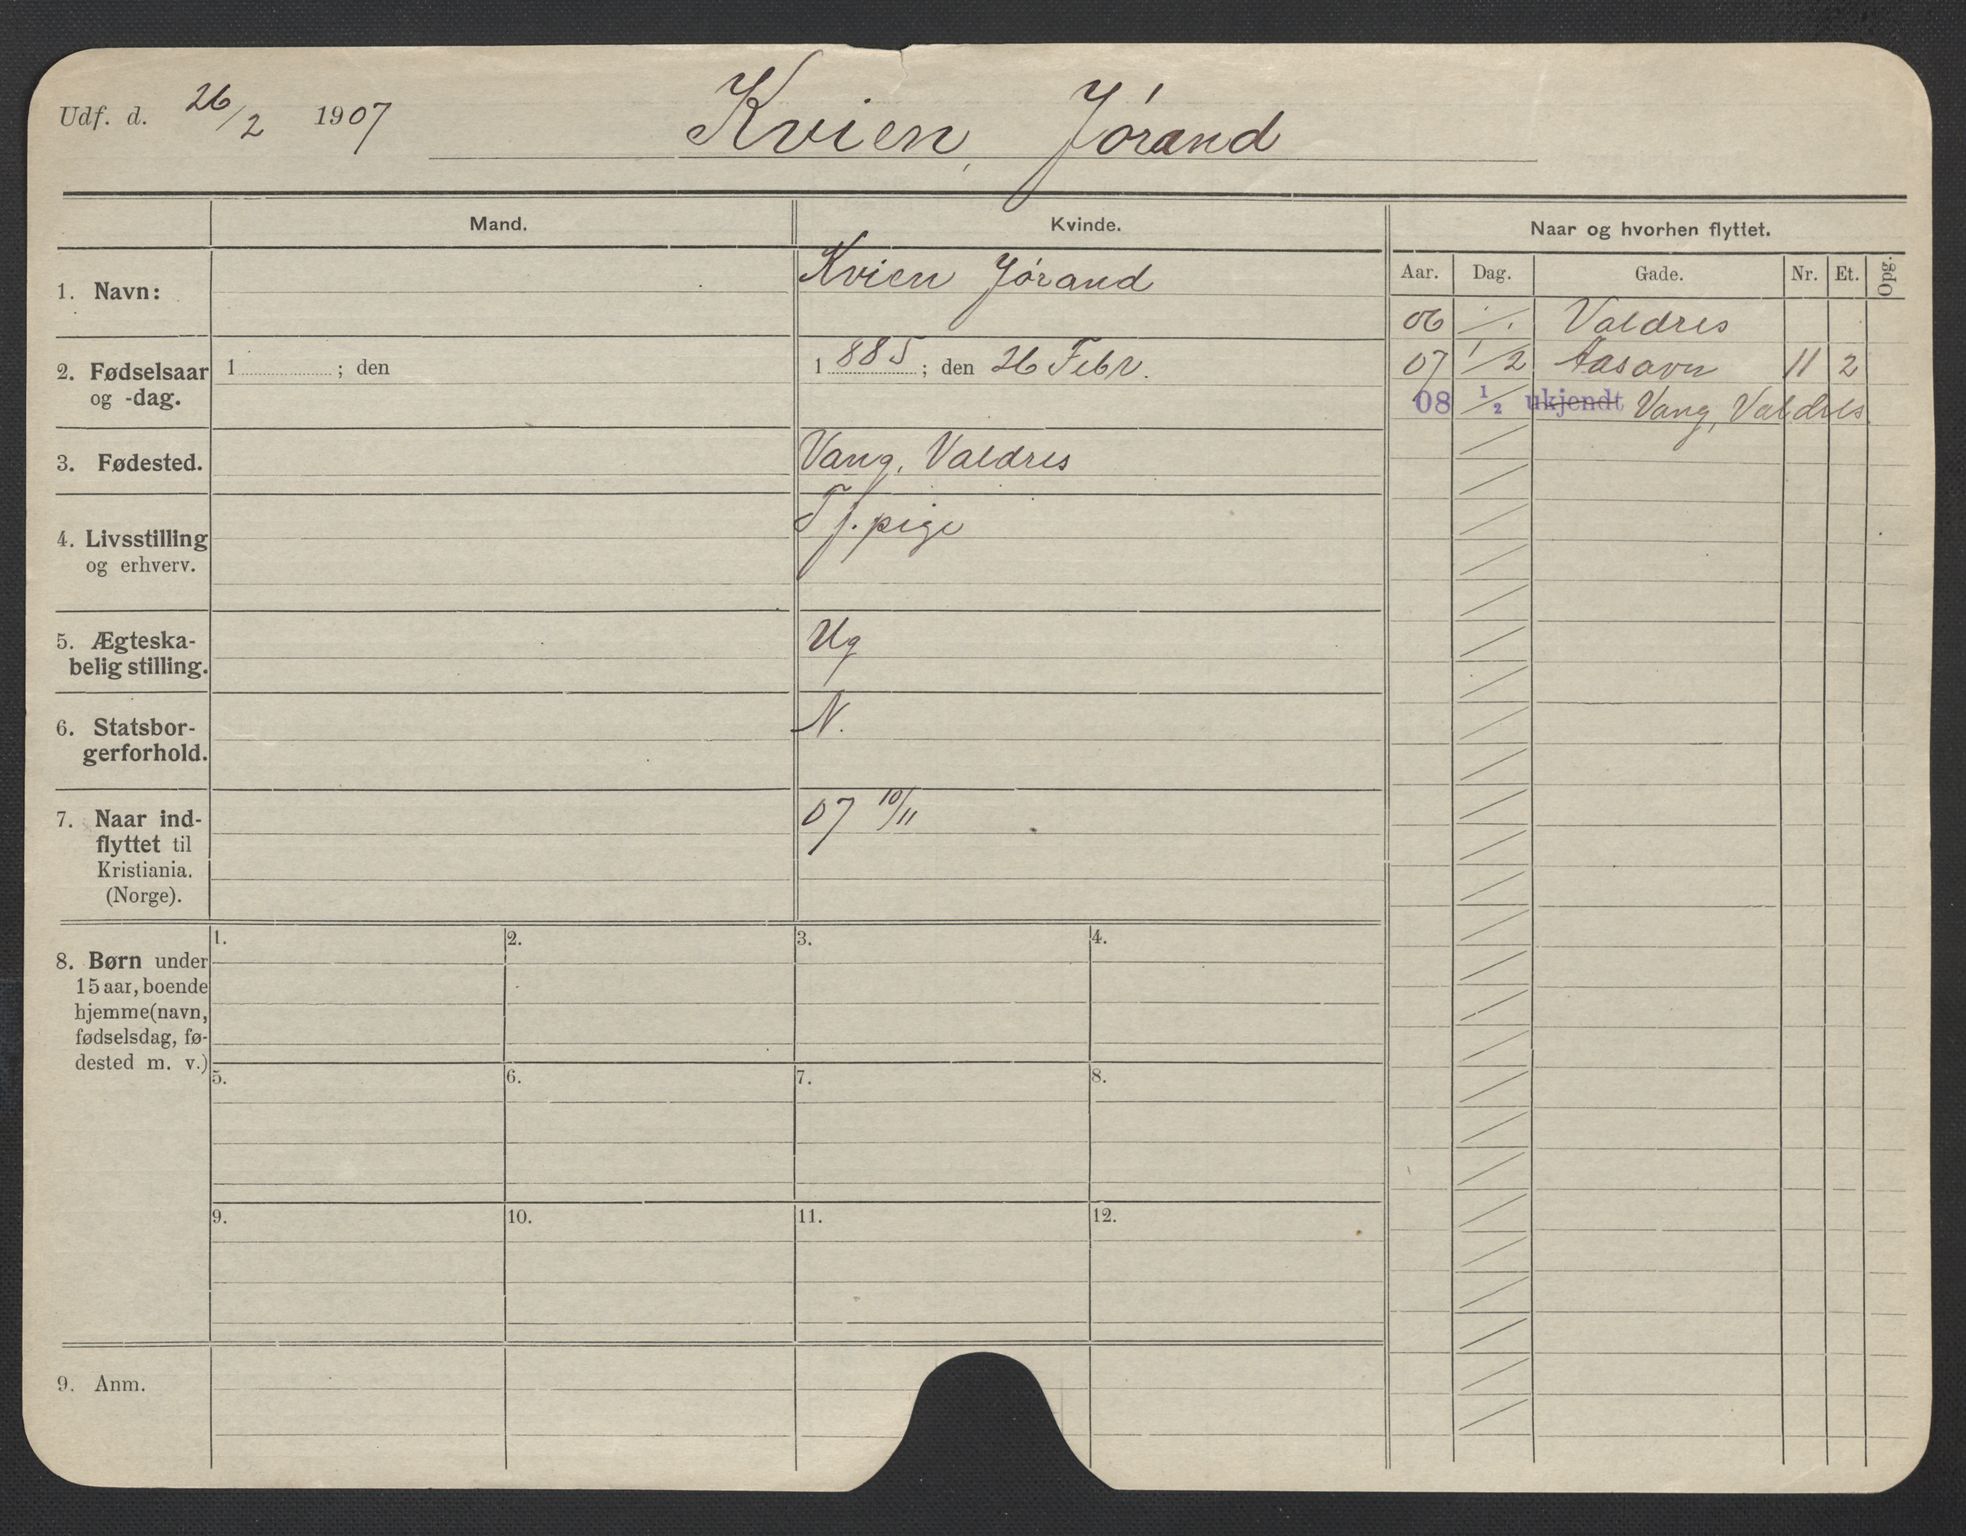 Udf. d. 26/2 1907 Kvien, Jørand
Mand. Kvinde. Naar og hvorhen flyttet.
Aar. Dag. Gade. Nr. Et. Opg.
1. Navn: Kvien Jørand
06 ./. Valdres
2. Fødselsaar
og -dag.
1 ; den
1885; den 26 Febr.
07 1/2 Aasavn 11 2
08 1/2 ukjendt Vang, Valdres
3. Fødested. Vang, Valdres
4. Livsstilling
og erhverv.
Tj. pige
5. Ægteska-
belig stilling.
Ug
6. Statsbor-
gerforhold.
N.
7. Naar ind-
flyttet til
Kristiania.
(Norge).
07 10/11
8. Børn under
15 aar, boende
hjemme(navn,
fødselsdag, fø-
dested m. v.)
1. 2. 3. 4.
5. 6. 7. 8.
9. 10. 11. 12.
9. Anm.